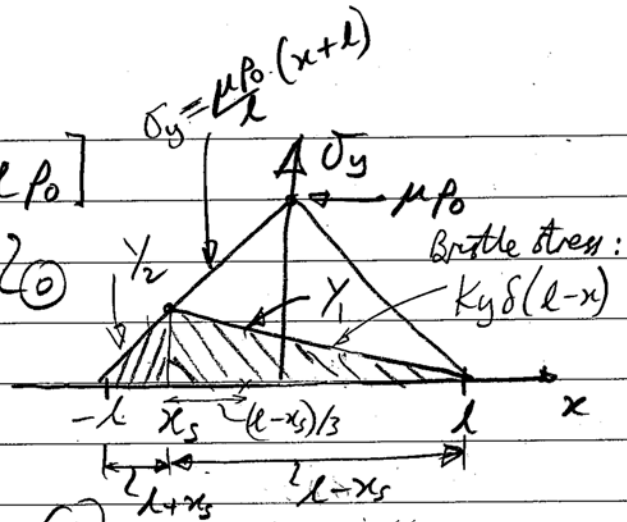 σy = μp₀/l (x+l)
p₀]
σy
μp₀
Bristle stress:
Y₂
Y₁
Kyδ(l-x)
-l
xs
(l-xs)/3
l
x
l+xs
l-xs